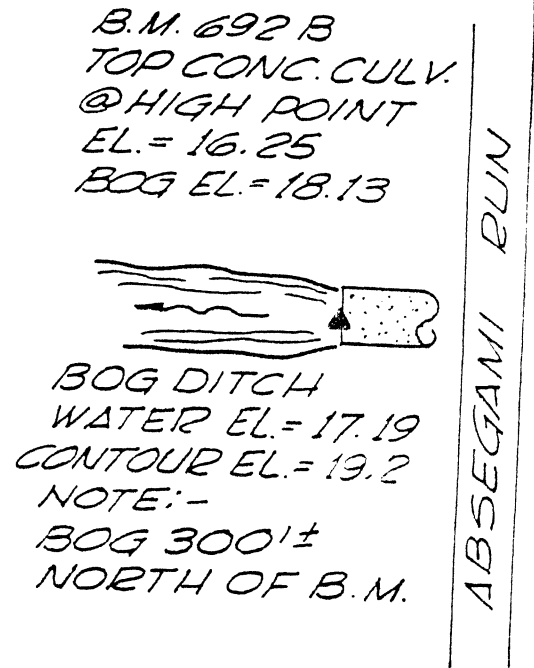 B.M. 692 B
TOP CONC. CULV.
@ HIGH POINT
EL. = 16.25
BOG EL. = 18.13
BOG DITCH
WATER EL. = 17.19
CONTOUR EL. = 19.2
NOTE:-
BOG 300'±
NORTH OF B.M.
ABSEGAMI RUN